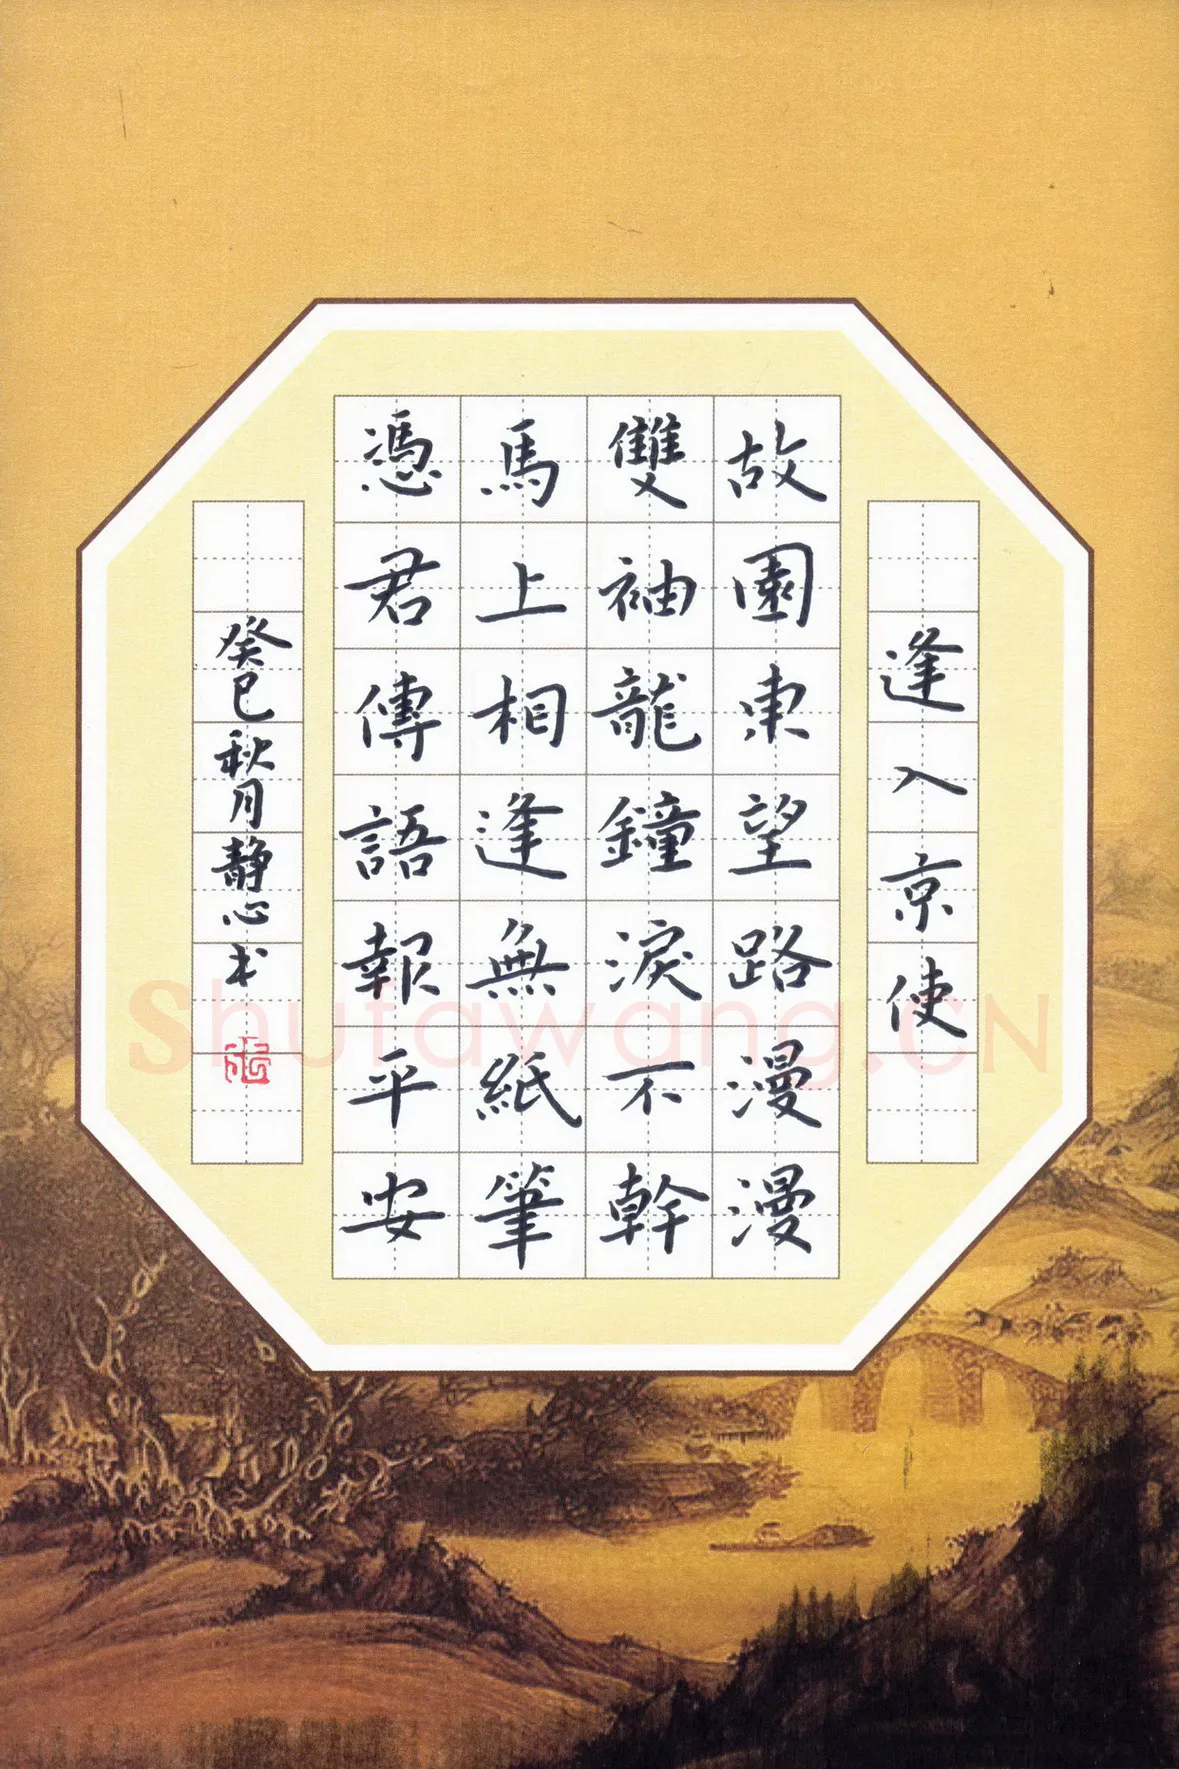 逢入京使
故園東望路漫漫
雙袖龍鐘淚不幹
馬上相逢無紙筆
憑君傳語報平安
癸巳秋月静心书
Shufawang.CN